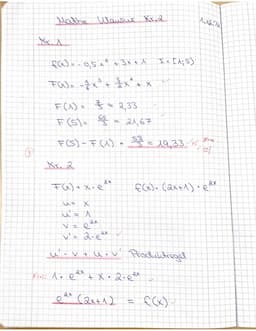 Mathe Klausur Nr. 2
Nr. 1
f(x) = -0,5x² + 3x + 1   I = [1;5]
F(x) = -1/6 x³ + 3/2 x² + x
F(1) = 7/3 = 2,33
F(5) = 21,67
F(5) - F(1) = 58/3 = 19,33
Nr. 2
F(x) = x · e^2x   f(x) = (2x+1) · e^2x
u = x
u' = 1
v = e^2x
v' = 2 · e^2x
u' · v + u · v'   Produktregel
1 · e^2x + x · 2 · e^2x
e^2x (2x+1) = f(x)